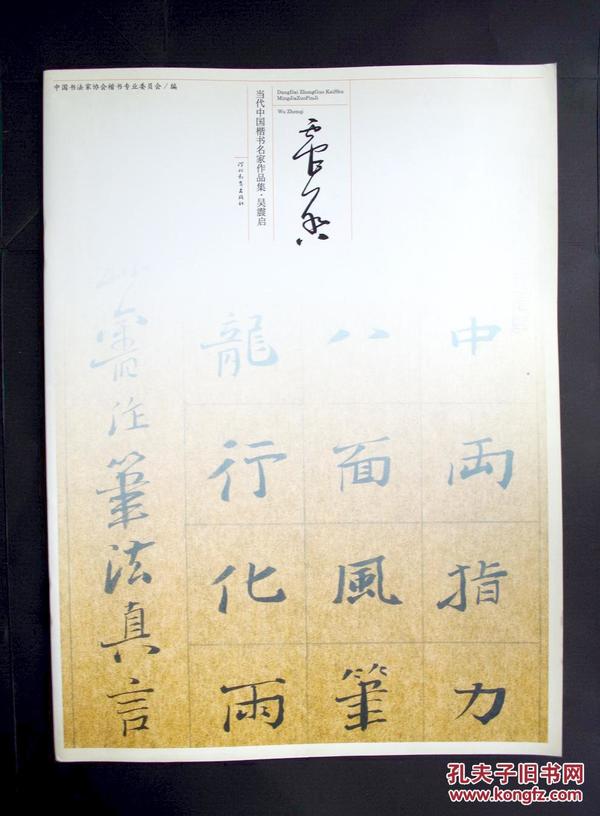 中国书法家协会楷书专业委员会/编
DangDai ZhongGuo KaiShu
MingJiaZuoPinJi
Wu Zhenqi
震启
当代中国楷书名家作品集·吴震启
河北教育出版社
中两指力
八面风笔
龍行化雨
笔法真言
孔夫子旧书网
www.kongfz.com